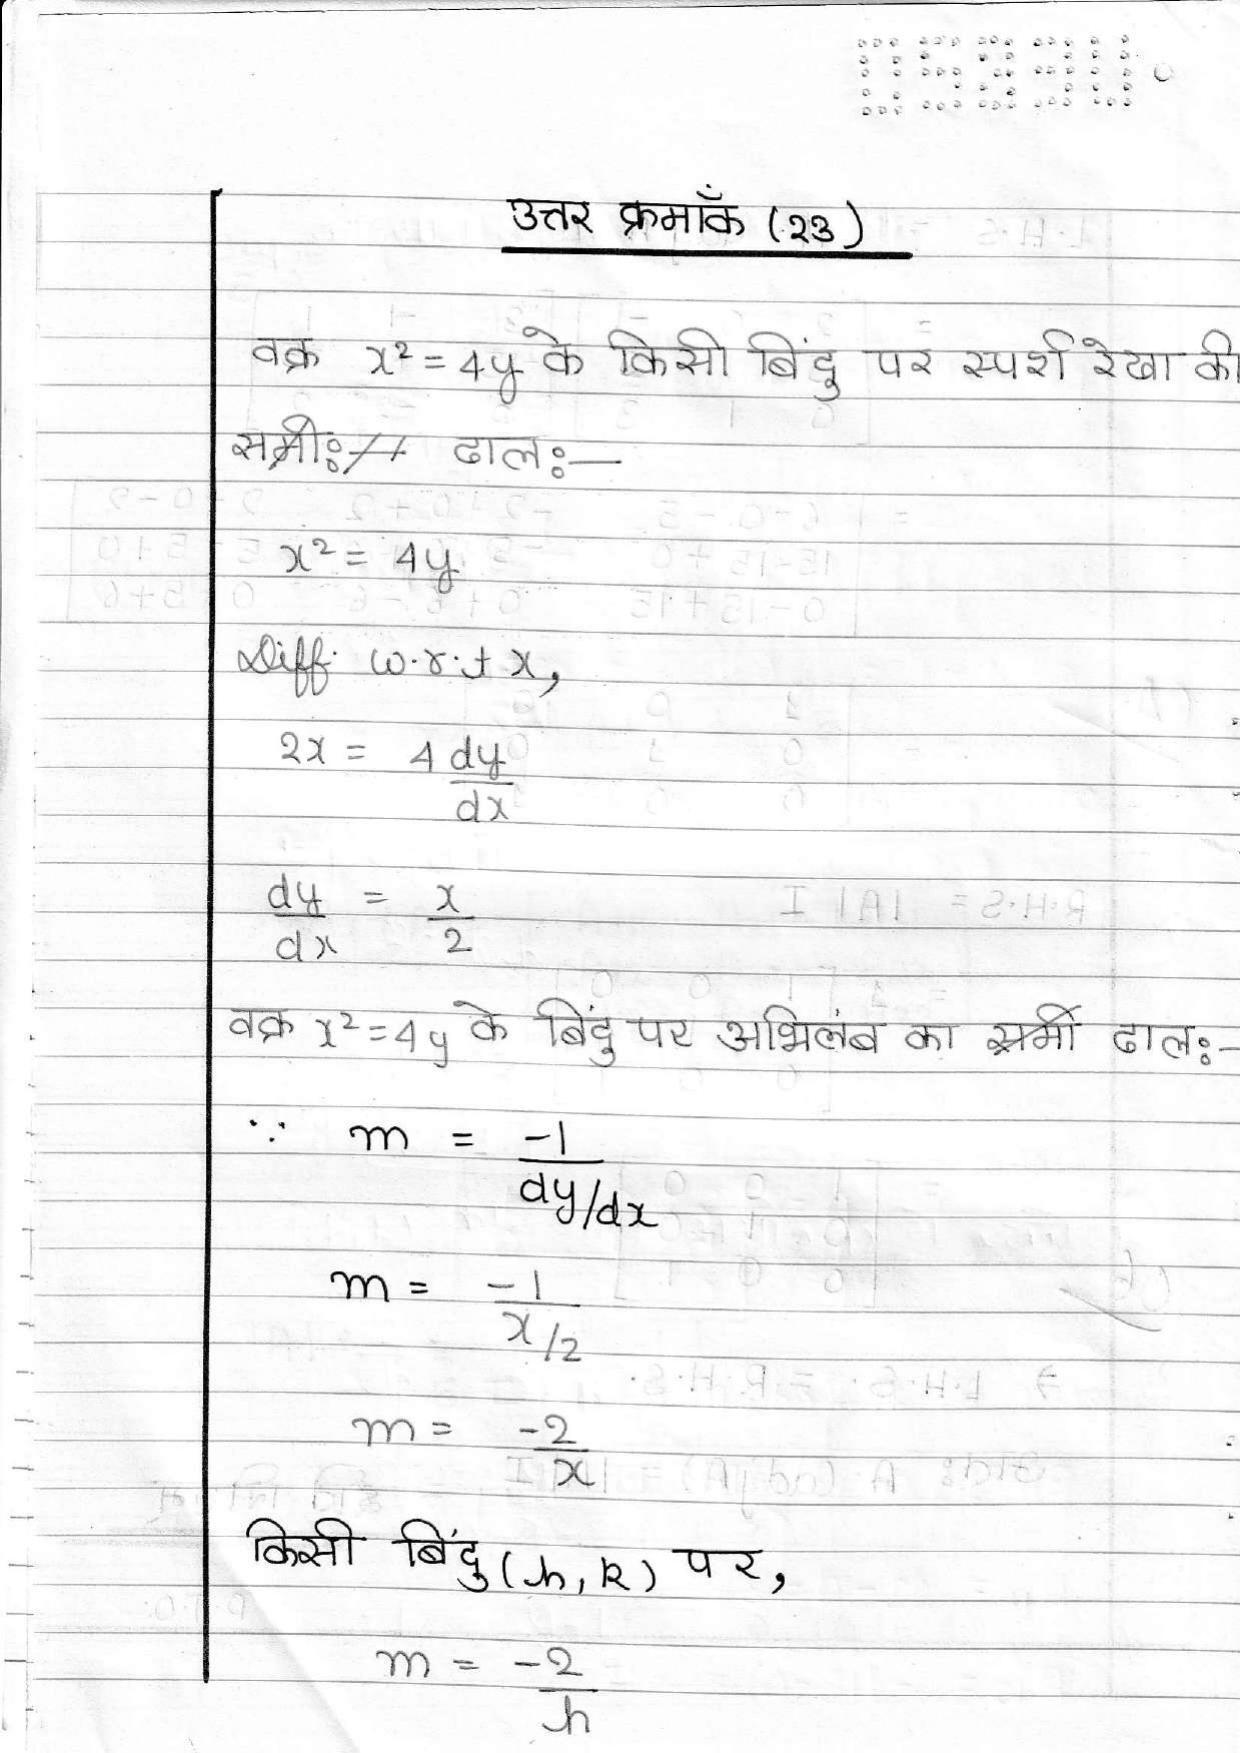 उत्तर क्रमाँक (23)
वक्र x² = 4y के किसी बिंदु पर स्पर्श रेखा की
ढालः—
x² = 4y
Diff. w.r.t x,
2x = 4 dy/dx
dy/dx = x/2
वक्र x² = 4y के बिंदु पर अभिलंब का ढालः–
∵ m = -1/(dy/dx)
m = -1/(x/2)
m = -2/x
किसी बिंदु (h, k) पर,
m = -2/h